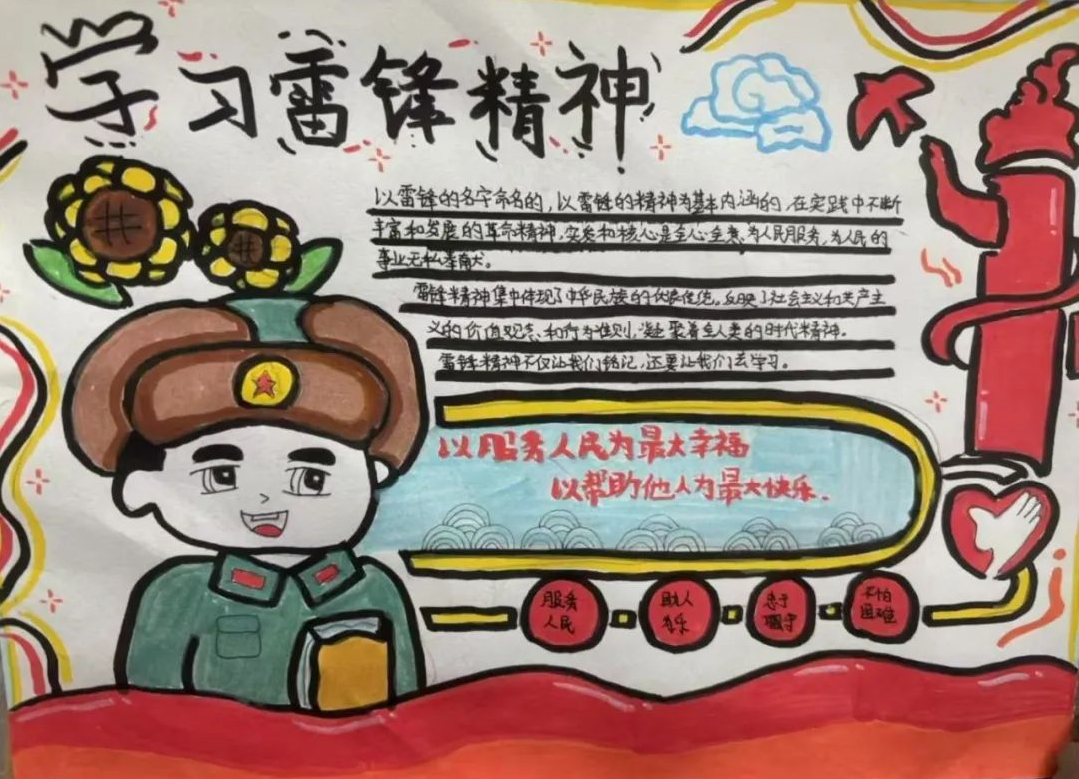 学习雷锋精神
以雷锋的名字命名的，以雷锋的精神为基本内涵的，在实践中不断
丰富和发展的革命精神，实质和核心是全心全意为人民服务，为人民的
事业无私奉献。
雷锋精神集中体现了中华民族的优良传统。反映了社会主义和共产主
义的价值观念、和行为准则，凝聚着全人类的时代精神。
雷锋精神不仅让我们铭记，还要让我们去学习。
以服务人民为最大幸福
以帮助他人为最大快乐.
服务
人民
助人
为乐
忠于
职守
不怕
困难